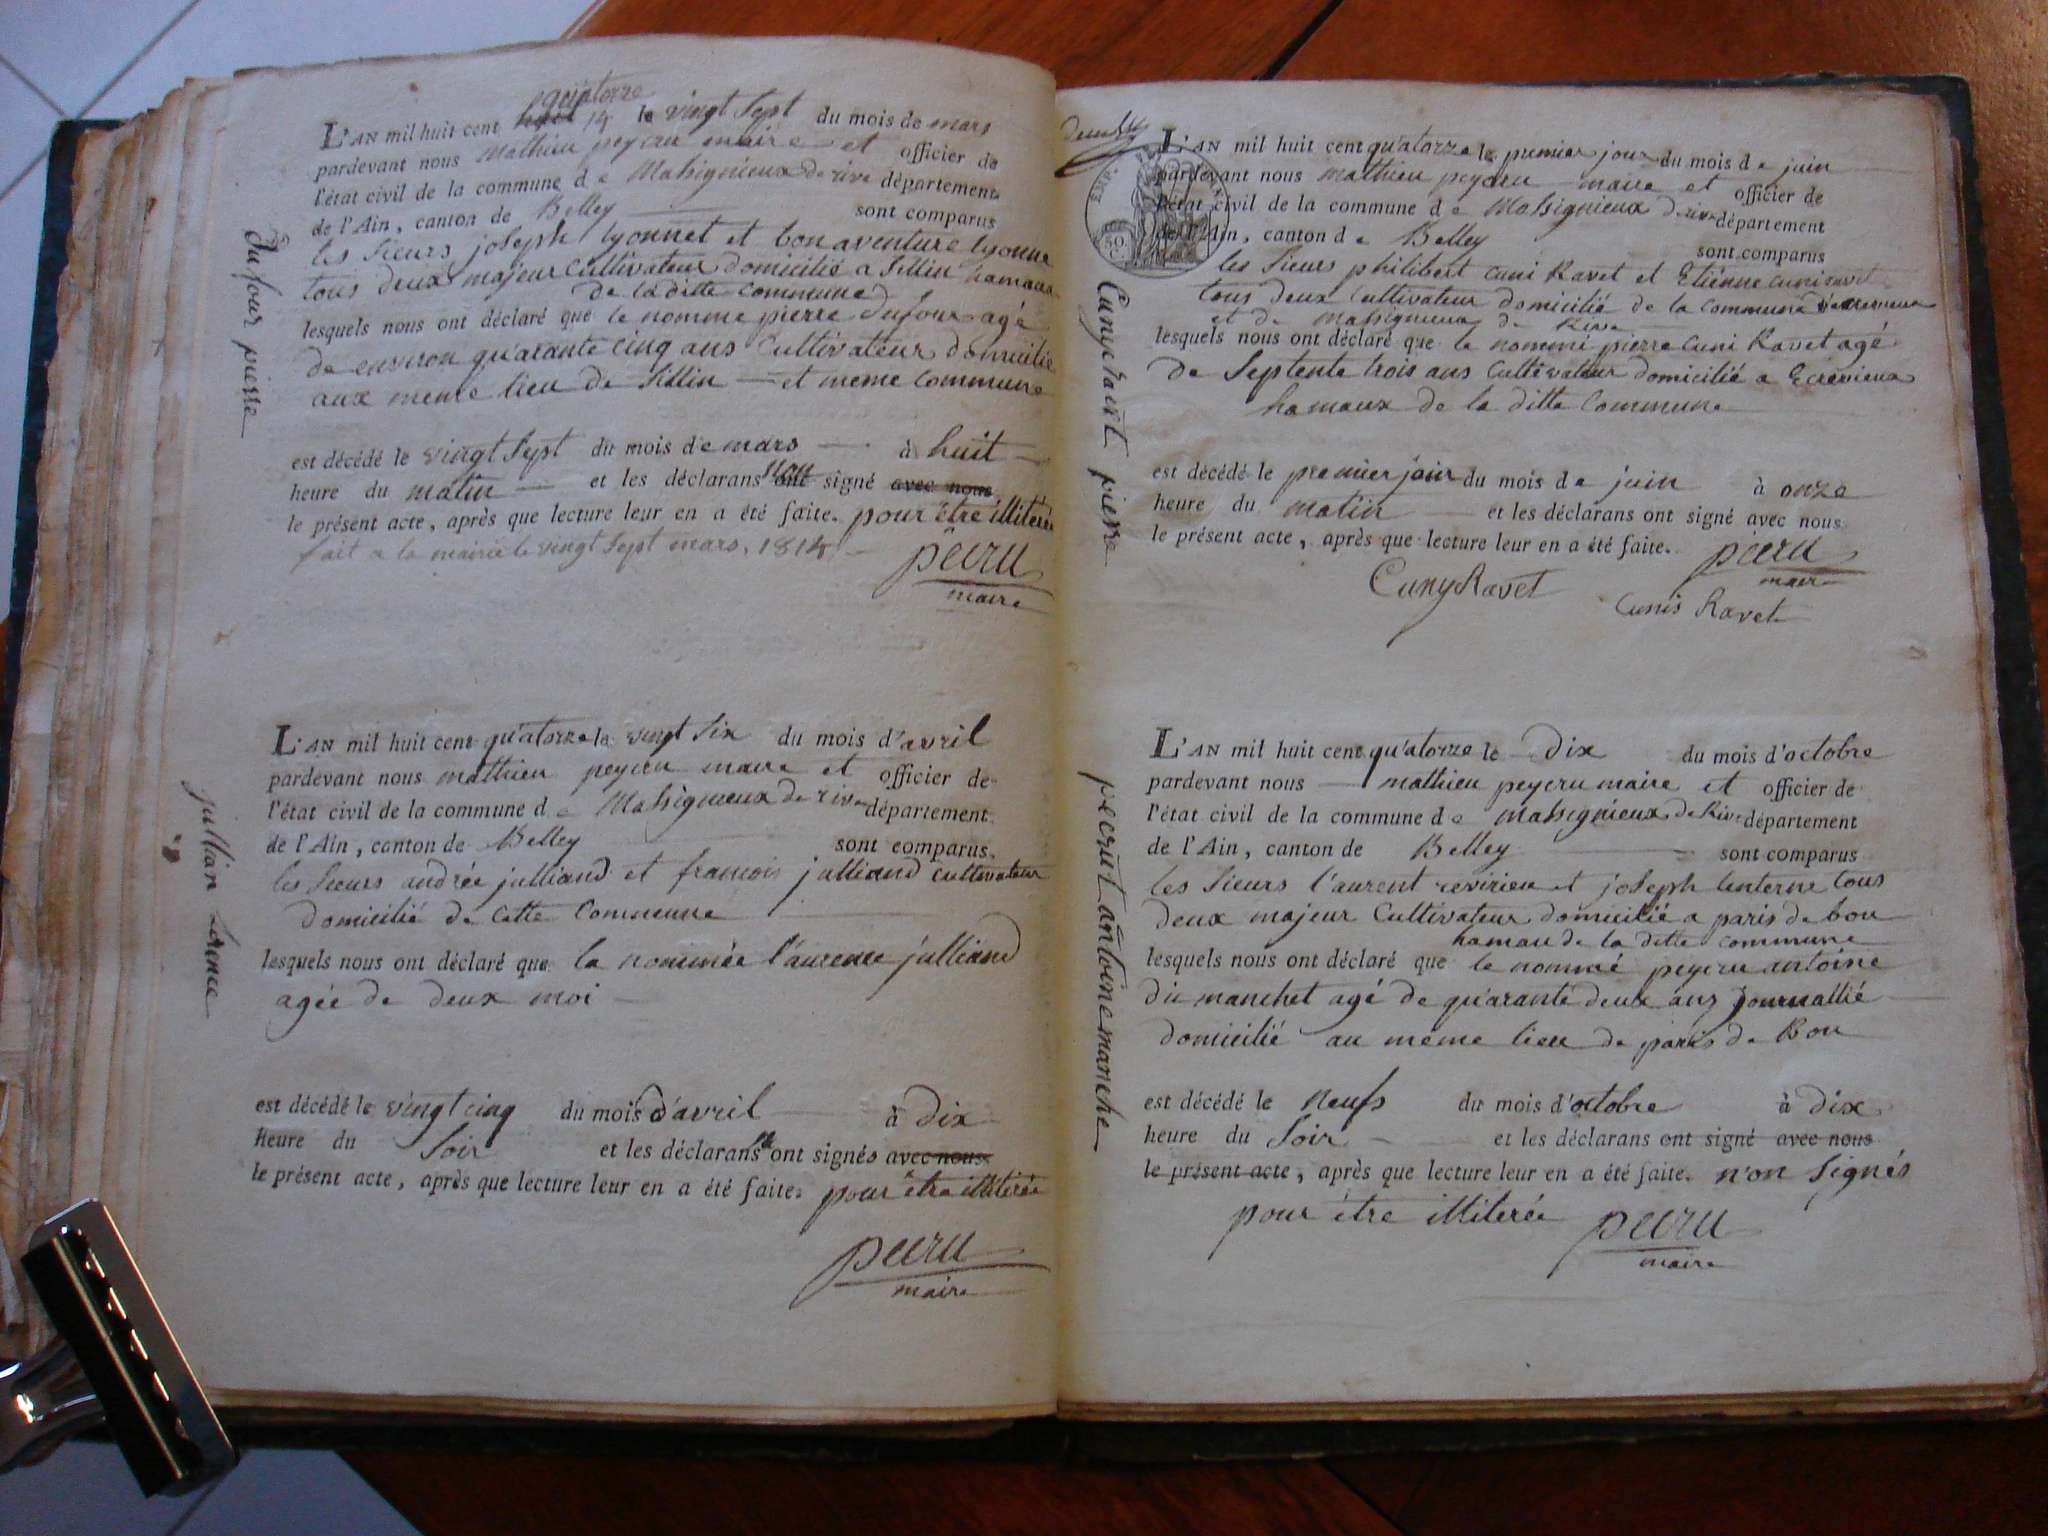 quatorze
L'AN mil huit cent 14 le vingt Sept du mois de mars
pardevant nous mathieu peyeru maire et officier de
l'état civil de la commune de Massignieux de rive département
de l'Ain, canton de Belley sont comparus
les Sieurs joseph lyonnet et bonaventure lyonne
tous deux majeur Cultivateur domicilié a Sillin hamaux
de la ditte commune
lesquels nous ont déclaré que le nomme pierre Dufour agé
de environ qu'arante cinq ans Cultivateur domicilie
aux meme lieu de Sillin et meme commune
est décédé le vingt Sept du mois de mars à huit
heure du matin et les déclarans non ont signé avec nous
le présent acte, après que lecture leur en a été faite. pour être illiterée
fait a la mairie le vingt Sept mars, 1814
pecru
maire
Dufour pierre
L'AN mil huit cent qu'atorze le vingt Six du mois d'avril
pardevant nous mathieu peyeru maire et officier de
l'état civil de la commune de Massignieux de rive département
de l'Ain, canton de Belley sont comparus.
les Sieurs andrée julliand et francois julliand cultivateur
domicilié de Cette Commune
lesquels nous ont déclaré que la nominée l'aurence julliand
agée de deux moi
est décédé le vingt cinq du mois d'avril à Dix
heure du Soir et les déclarans ont signés avec nous
le présent acte, après que lecture leur en a été faite. pour être illiterée
pecru
maire
jullian Lorence
L'AN mil huit cent qu'atorze le premier jour du mois de juin
pardevant nous mathieu peyeru maire et officier de
l'état civil de la commune de Massignieux de rive département
de l'Ain, canton de Belley
sont comparus
les Sieurs philibert cuni Ravet et Etiénne cuni ravet
tous deux Cultivateur domicilié de la commune
et de massignieux de Rive
lesquels nous ont déclaré que le nommé pierre cuni Ravet agé
de Septente trois ans Cultivateur domicilié a Ecrevieux
hamaux de la ditte Commune
est décédé le premier jour du mois de juin à onze
heure du matin et les déclarans ont signé avec nous
le présent acte, après que lecture leur en a été faite. pecru
maire
CunyRavet
Cunis Ravet
50. C.
Cunyravet pierre
L'AN mil huit cent qu'atorze le Dix du mois d'octobre
pardevant nous mathieu peyeru maire et officier de
l'état civil de la commune de massignieux de Rive département
de l'Ain, canton de Belley sont comparus
les Sieurs l'aurent revirieu et joseph lenterne tous
deux majeur Cultivateur domicilié a paris de bon
hamau de la ditte commune
lesquels nous ont déclaré que le nommé peyeru antoine
dit manchet agé de qu'arante deux ans journallié
domicilié au meme lieu de paris de Bon
est décédé le neufs du mois d'octobre à dix
heure du Soir et les déclarans ont signé avec nous
le présent acte, après que lecture leur en a été faite. n'on Signés
pour être illiterée pecru
maire
pecrut antoine maneche